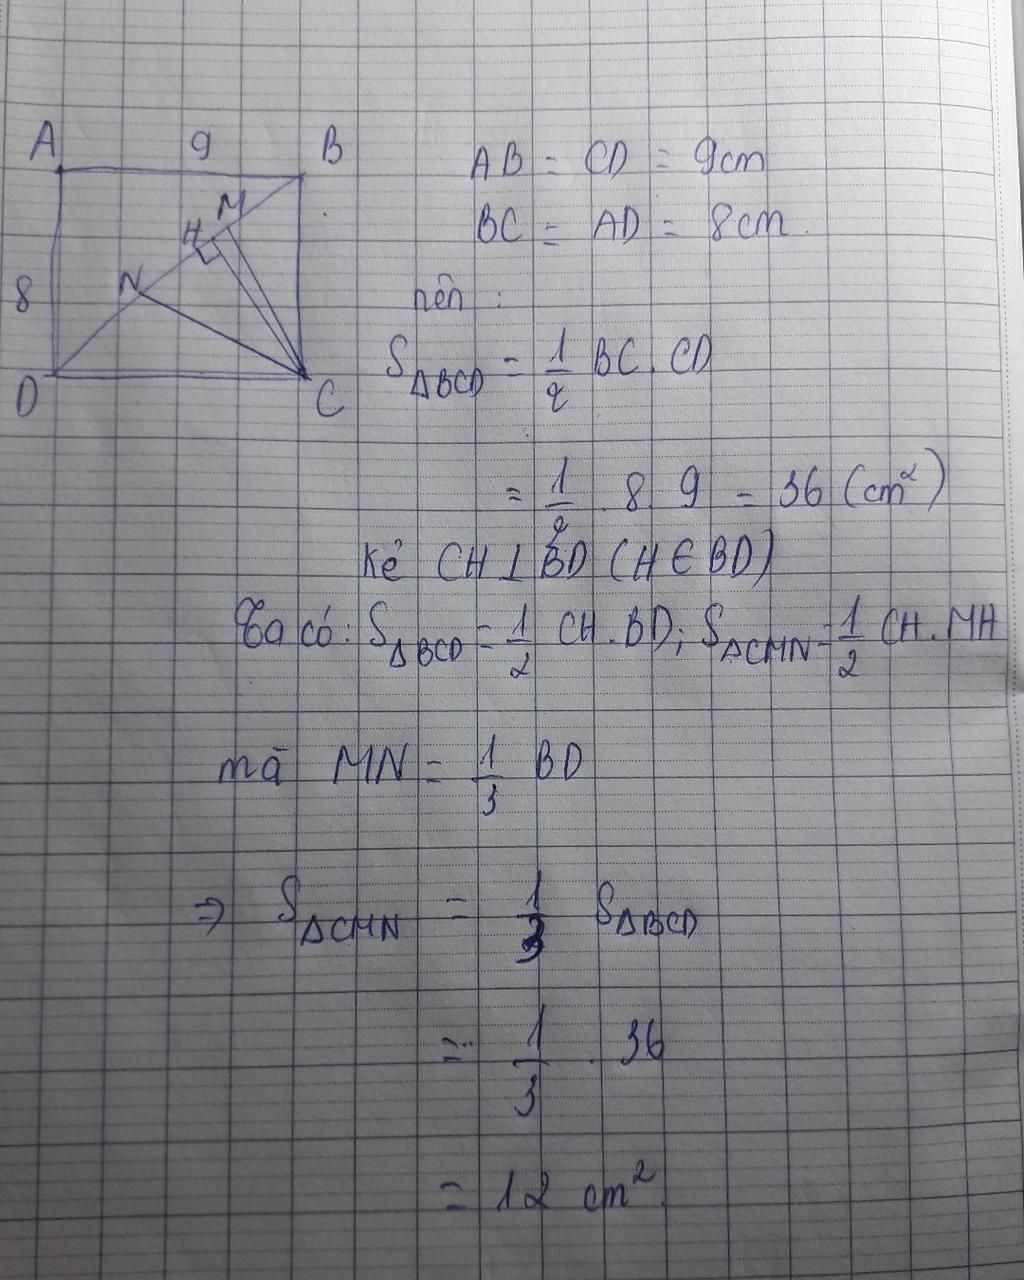 A 9 B
M
H
N
8
D C
AB = CD = 9cm
BC = AD = 8cm.
nên :
S△BCD = 1/2 BC. CD
= 1/2 . 8. 9 = 36 (cm²)
Kẻ CH ⊥ BD (H ∈ BD)
Ta có: S△BCD = 1/2 CH. BD; S△CMN = 1/2 CH. MH
mà MN = 1/3 BD
⇒ S△CMN = 1/3 S△BCD
= 1/3 . 36
= 12 cm².